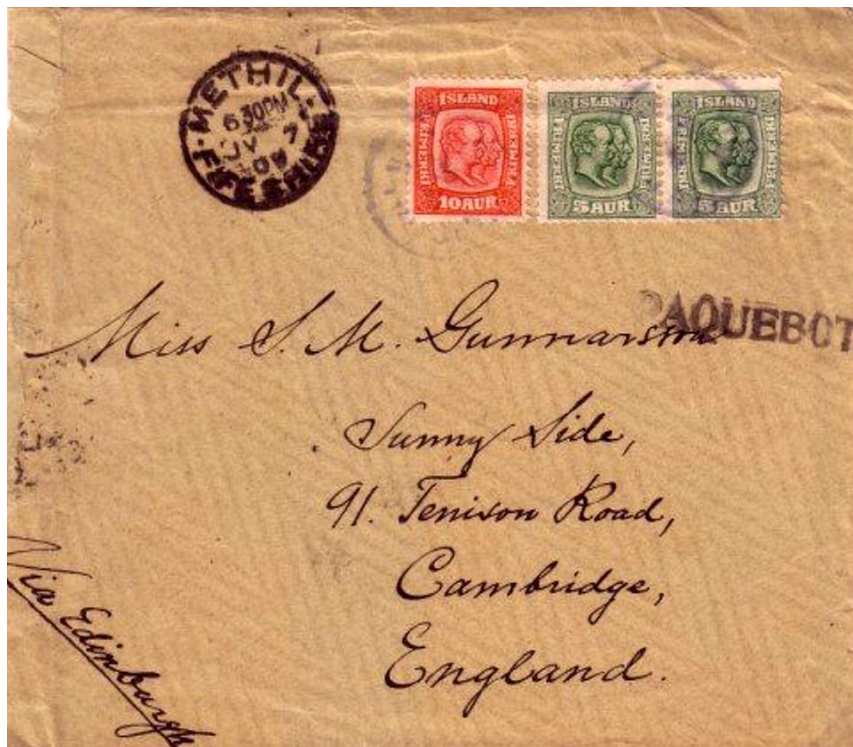 METHIL
6 30PM
JY 7
09
FIFESHIRE
ISLAND
FRIMERKI FRIMERKI
10 AUR
ISLAND
FRIMERKI FRIMERKI
5 AUR
ISLAND
FRIMERKI FRIMERKI
5 AUR
PAQUEBOT
Miss S. M. Gunnarsson
Sunny Side,
91. Tenison Road,
Cambridge,
England.
Via Edinburgh